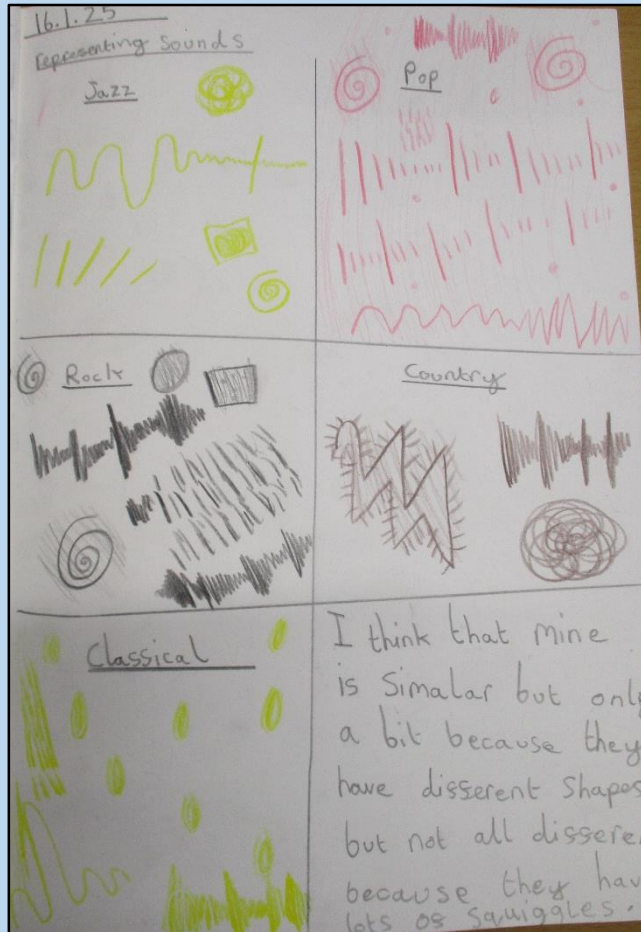 16.1.25
representing sounds
Jazz
Pop
Rock
Country
Classical
I think that mine
is simalar but only
a bit because they
have disserent shapes
but not all disseren
because they hav
lots os squiggles.